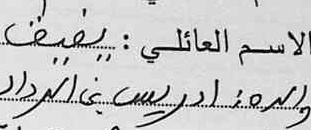 الاسم العائلي: يفيف
والده: ادريس بن الرداد